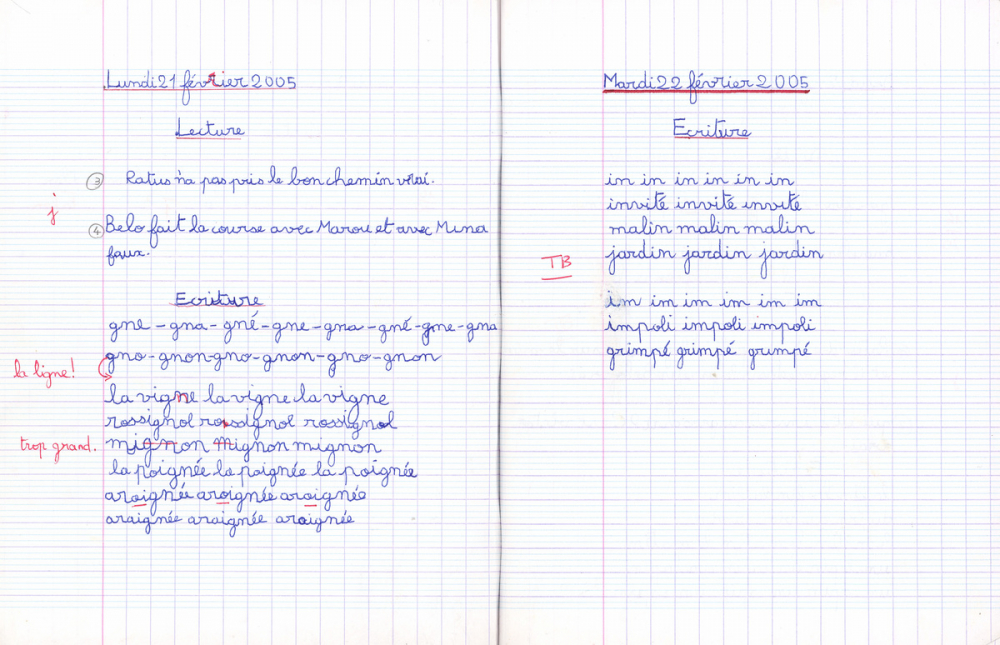 Lundi 21 février 2005
Lecture
③ Ratus n'a pas pris le bon chemin vrai.
j
④ Belo fait la course avec Marou et avec Mina
faux.
Ecriture
gne - gna - gné - gne - gna - gné - gne - gna
gno - gnon - gno - gnon - gno - gnon
la ligne!
la vigne la vigne la vigne
rossignol rossignol rossignol
trop grand. mignon mignon mignon
la poignée la poignée la poignée
aroignée aroignée aroignée
araignée araignée araignée
Mardi 22 février 2005
Ecriture
in in in in in in
invité invité invité
malin malin malin
jardin jardin jardin
TB
im im im im im im
impoli impoli impoli
grimpé grimpé grimpé